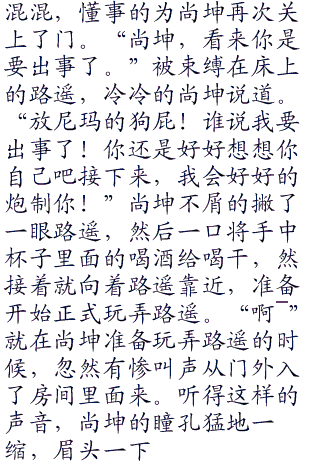 混混，懂事的为尚坤再次关
上了门。“尚坤，看来你是
要出事了。”被束缚在床上
的路遥，冷冷的尚坤说道。
“放尼玛的狗屁！谁说我要
出事了！你还是好好想想你
自己吧接下来，我会好好的
炮制你！”尚坤不屑的撇了
一眼路遥，然后一口将手中
杯子里面的喝酒给喝干，然
接着就向着路遥靠近，准备
开始正式玩弄路遥。“啊¯”
就在尚坤准备玩弄路遥的时
候，忽然有惨叫声从门外入
了房间里面来。听得这样的
声音，尚坤的瞳孔猛地一
缩，眉头一下